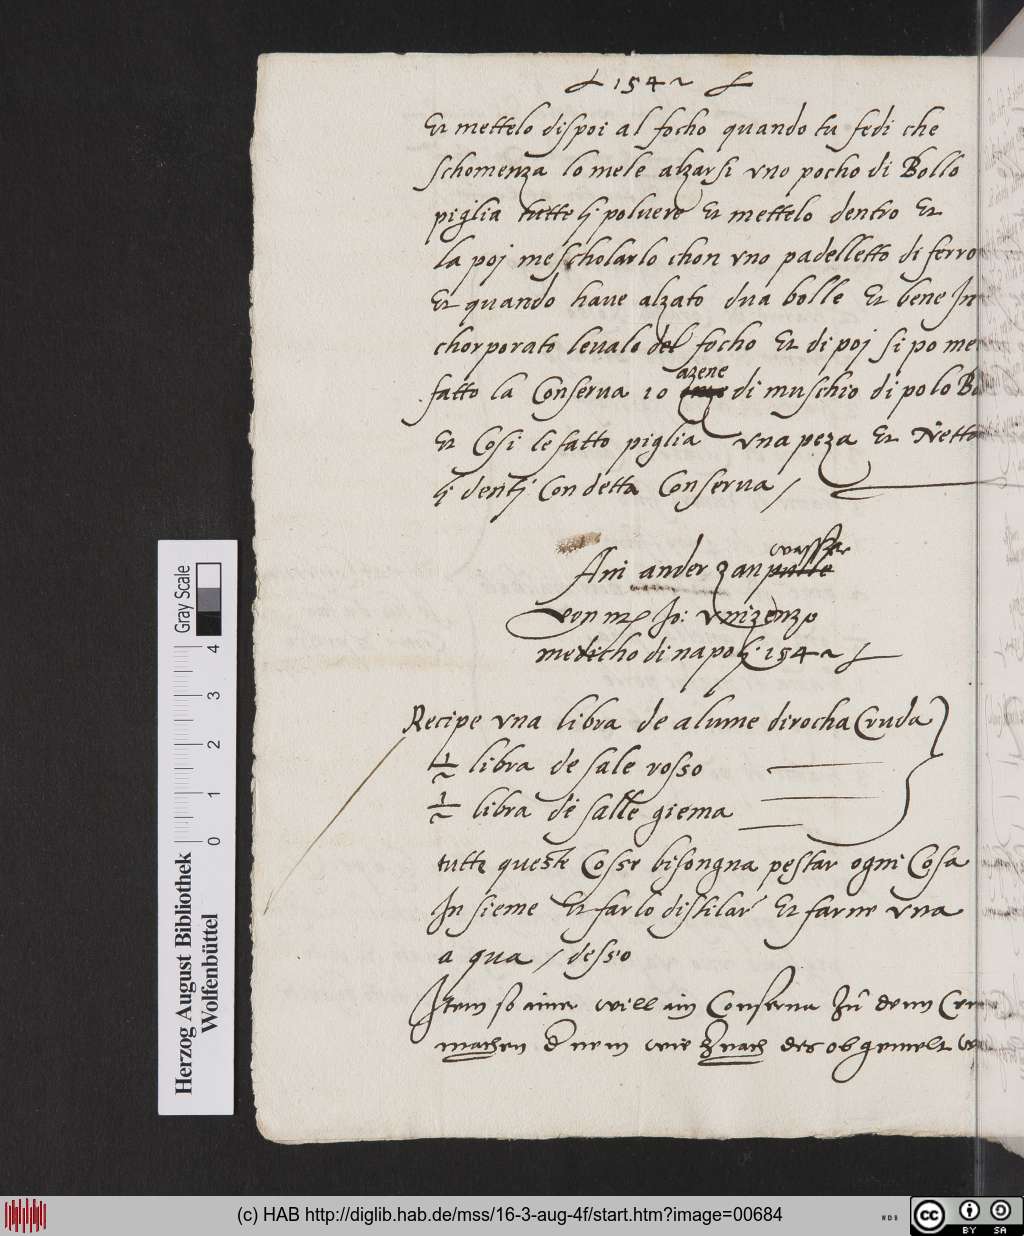 1542
Et mettelo dispoi al focho quando tu fedi che
schomenza lo mele alzarsi vno pocho di Bollo
piglia tutte lj poluere Et mettelo dentro Et
la poj mescholarlo chon vno padelletto di ferro
Et quando haue alzato dua bolle Et bene In
chorporato leualo del focho Et di poj si po me
azene
fatto la Conserua 10 di muschio di polo
Et Cosi le fatto piglia vna peza Et Netto
lj dentj Con detta Conserua /
wasser
Ain ander zan pulle
von mr Jo: vnizenzo
medicho di napolj 1542
Recipe vna libra de alume dirocha Cruda
½ libra de sale rosso
½ libra de salle giema
tutte queste Cosse bisongna pestar ogni Cosa
In sieme Et farlo distilar Et farne vna
a qua / desso
Item so ainer will ain Conserua Zu denn
machen der nem wie hernach des obgemelt
Herzog August Bibliothek
Wolfenbüttel
Gray Scale
0 1 2 3 4
(c) HAB http://diglib.hab.de/mss/16-3-aug-4f/start.htm?image=00684
WDB
cc
BY SA